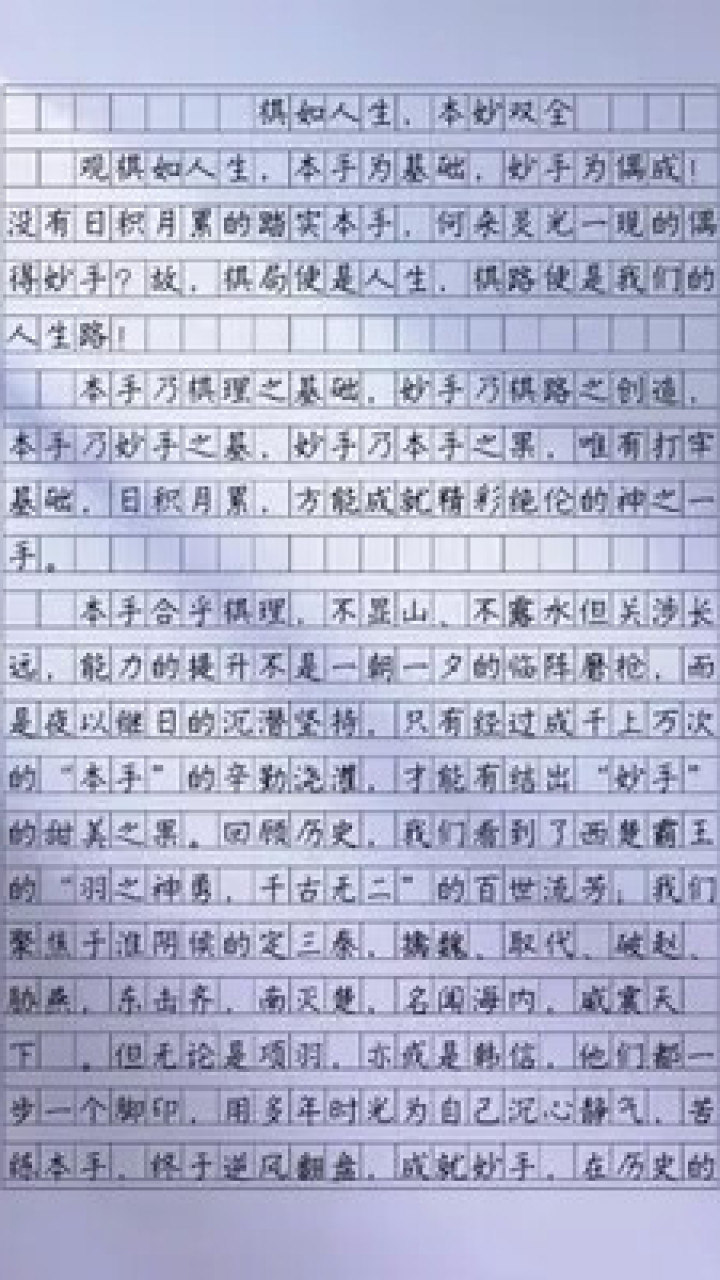 棋如人生，本妙双全
观棋如人生，本手为基础，妙手为偶成！
没有日积月累的踏实本手，何来灵光一现的偶
得妙手？故，棋局便是人生，棋路便是我们的
人生路！
本手乃棋理之基础，妙手乃棋路之创造，
本手乃妙手之基，妙手乃本手之果，唯有打牢
基础，日积月累，方能成就精彩绝伦的神之一
手。
本手合乎棋理，不显山、不露水但关涉长
远，能力的提升不是一朝一夕的临阵磨枪，而
是夜以继日的沉潜坚持，只有经过成千上万次
的“本手”的辛勤浇灌，才能有结出“妙手”
的甜美之果。回顾历史，我们看到了西楚霸王
的“羽之神勇，千古无二”的百世流芳；我们
聚焦于淮阴侯的定三秦、擒魏、取代、破赵、
胁燕，东击齐，南灭楚，名闻海内，威震天
下 。但无论是项羽，亦或是韩信，他们都一
步一个脚印，用多年时光为自己沉心静气，苦
练本手，终于逆风翻盘，成就妙手，在历史的